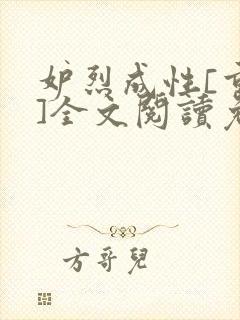 妒烈成性[
]全文閱讀
方哥兒